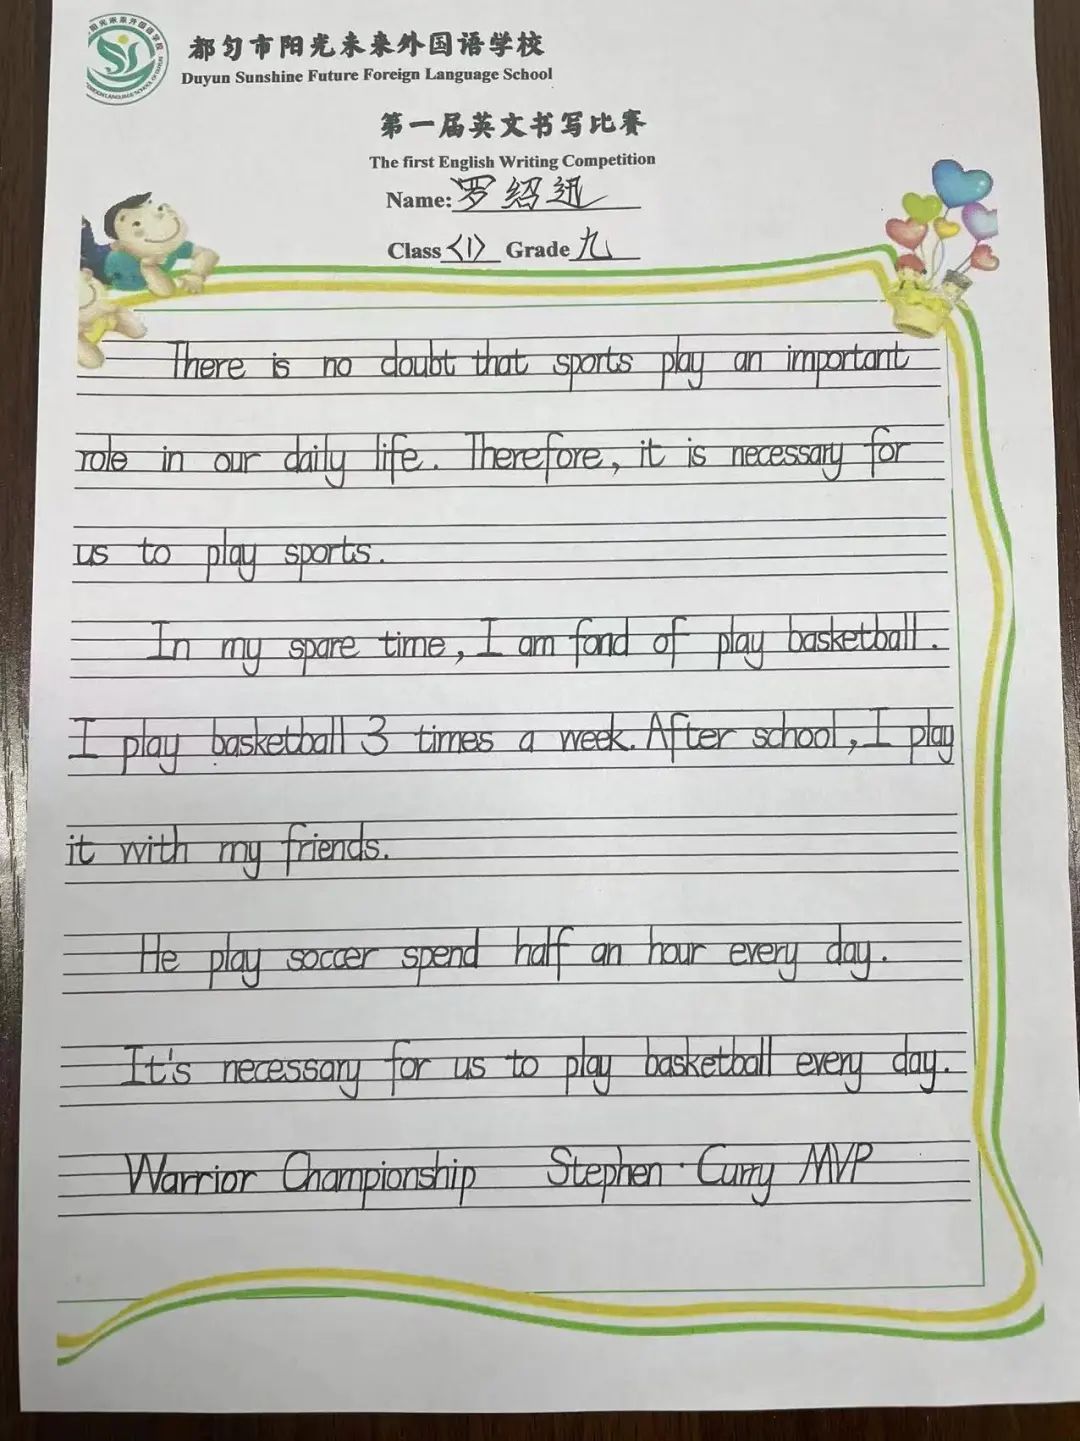 都匀市阳光未来外国语学校
Duyun Sunshine Future Foreign Language School
第一届英文书写比赛
The first English Writing Competition
Name: 罗绍迅
Class <1> Grade 九
There is no doubt that sports play an important
role in our daily life. Therefore, it is necessary for
us to play sports.
In my spare time, I am fond of play basketball.
I play basketball 3 times a week. After school, I play
it with my friends.
He play soccer spend half an hour every day.
It's necessary for us to play basketball every day.
Warrior Championship Stephen · Curry MVP